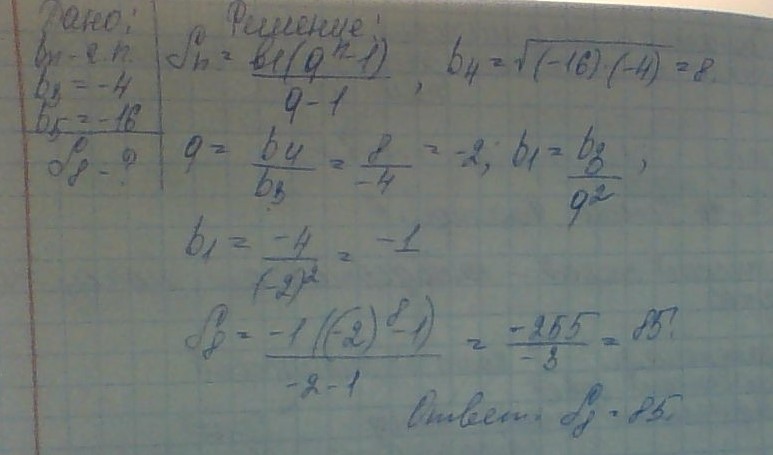 Дано:
bn - г.п.
b3 = -4
b5 = -16
S8 - ?
Решение:
Sn = b1(q^n - 1) / q - 1, b4 = √(-16)·(-4) = 8.
q = b4 / b3 = 8 / -4 = -2; b1 = b3 / q^2,
b1 = -4 / (-2)^2 = -1
S8 = -1((-2)^8 - 1) / -2 - 1 = -255 / -3 = 85.
Ответ: S8 = 85.